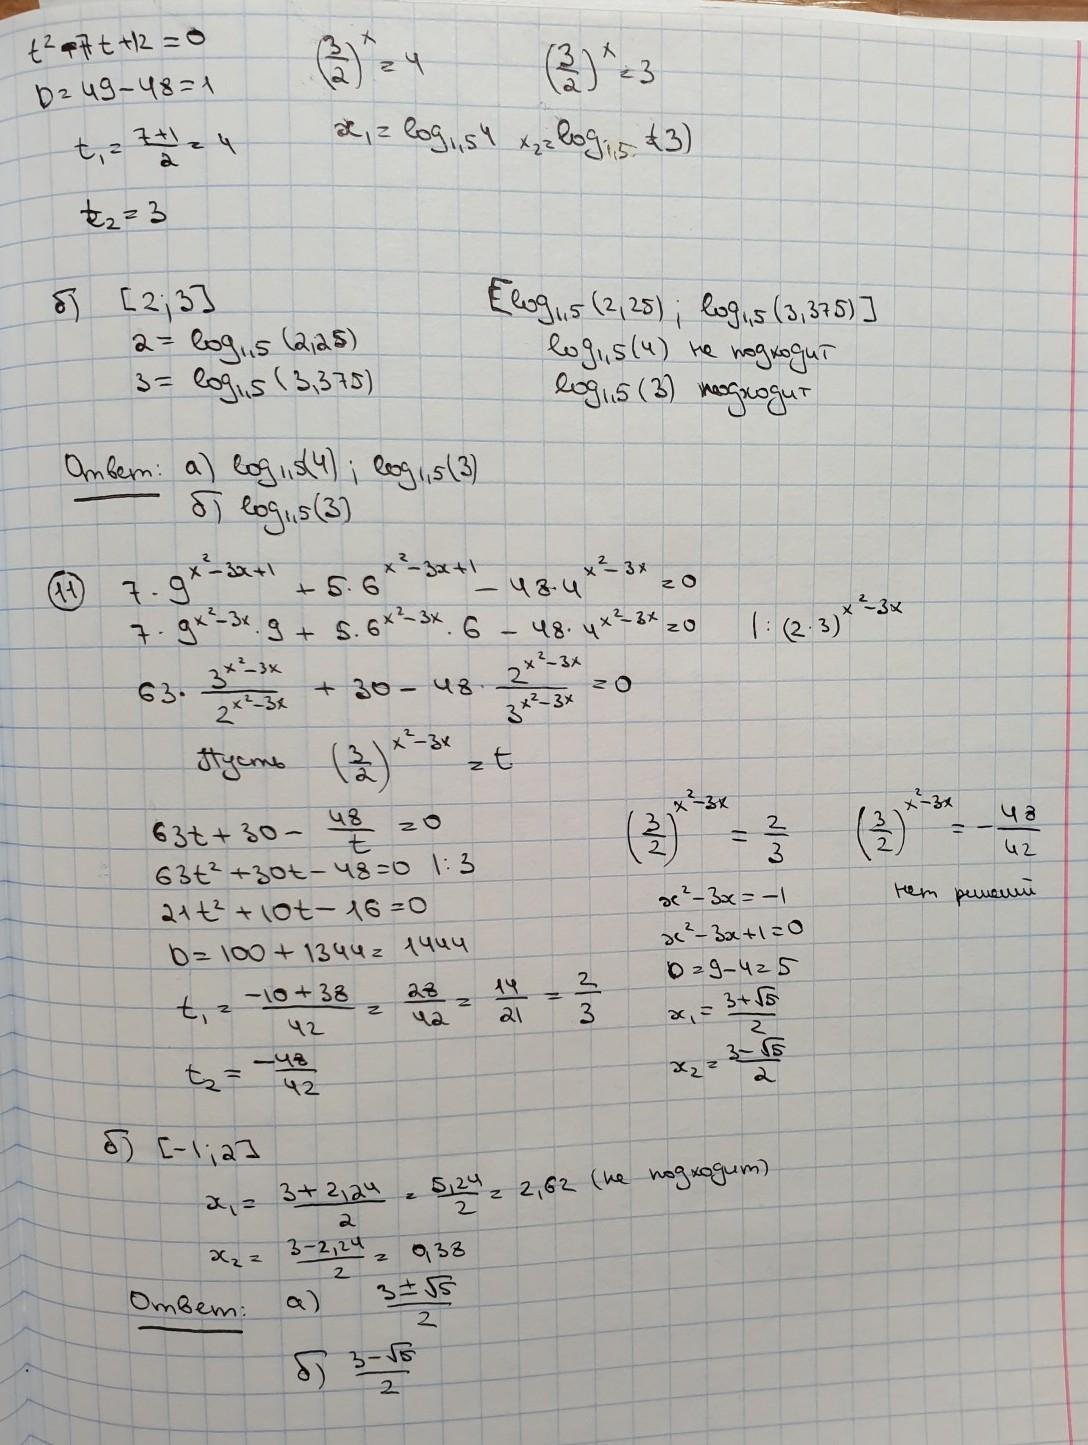 t² - 7t + 12 = 0
D = 49 - 48 = 1
t₁ = (7+1)/2 = 4
t₂ = 3
(3/2)^x = 4
x₁ = log₁,₅ 4
(3/2)^x = 3
x₂ = log₁,₅ (3)
б) [2; 3]
2 = log₁,₅ (2,25)
3 = log₁,₅ (3,375)
[log₁,₅ (2,25) ; log₁,₅ (3,375)]
log₁,₅ (4) не подходит
log₁,₅ (3) подходит
Ответ: а) log₁,₅(4) ; log₁,₅(3)
б) log₁,₅(3)
(11) 7 · 9^(x²-3x+1) + 5 · 6^(x²-3x+1) - 48 · 4^(x²-3x) = 0
7 · 9^(x²-3x) · 9 + 5 · 6^(x²-3x) · 6 - 48 · 4^(x²-3x) = 0 | : (2·3)^(x²-3x)
63 · 3^(x²-3x)/2^(x²-3x) + 30 - 48 · 2^(x²-3x)/3^(x²-3x) = 0
Пусть (3/2)^(x²-3x) = t
63t + 30 - 48/t = 0
63t² + 30t - 48 = 0 | : 3
21t² + 10t - 16 = 0
D = 100 + 1344 = 1444
t₁ = (-10+38)/42 = 28/42 = 14/21 = 2/3
t₂ = -48/42
(3/2)^(x²-3x) = 2/3
x² - 3x = -1
x² - 3x + 1 = 0
D = 9 - 4 = 5
x₁ = (3+√5)/2
x₂ = (3-√5)/2
(3/2)^(x²-3x) = -48/42
нет решений
б) [-1; 2]
x₁ = (3+2,24)/2 = 5,24/2 = 2,62 (не подходит)
x₂ = (3-2,24)/2 = 0,38
Ответ: а) (3±√5)/2
б) (3-√5)/2